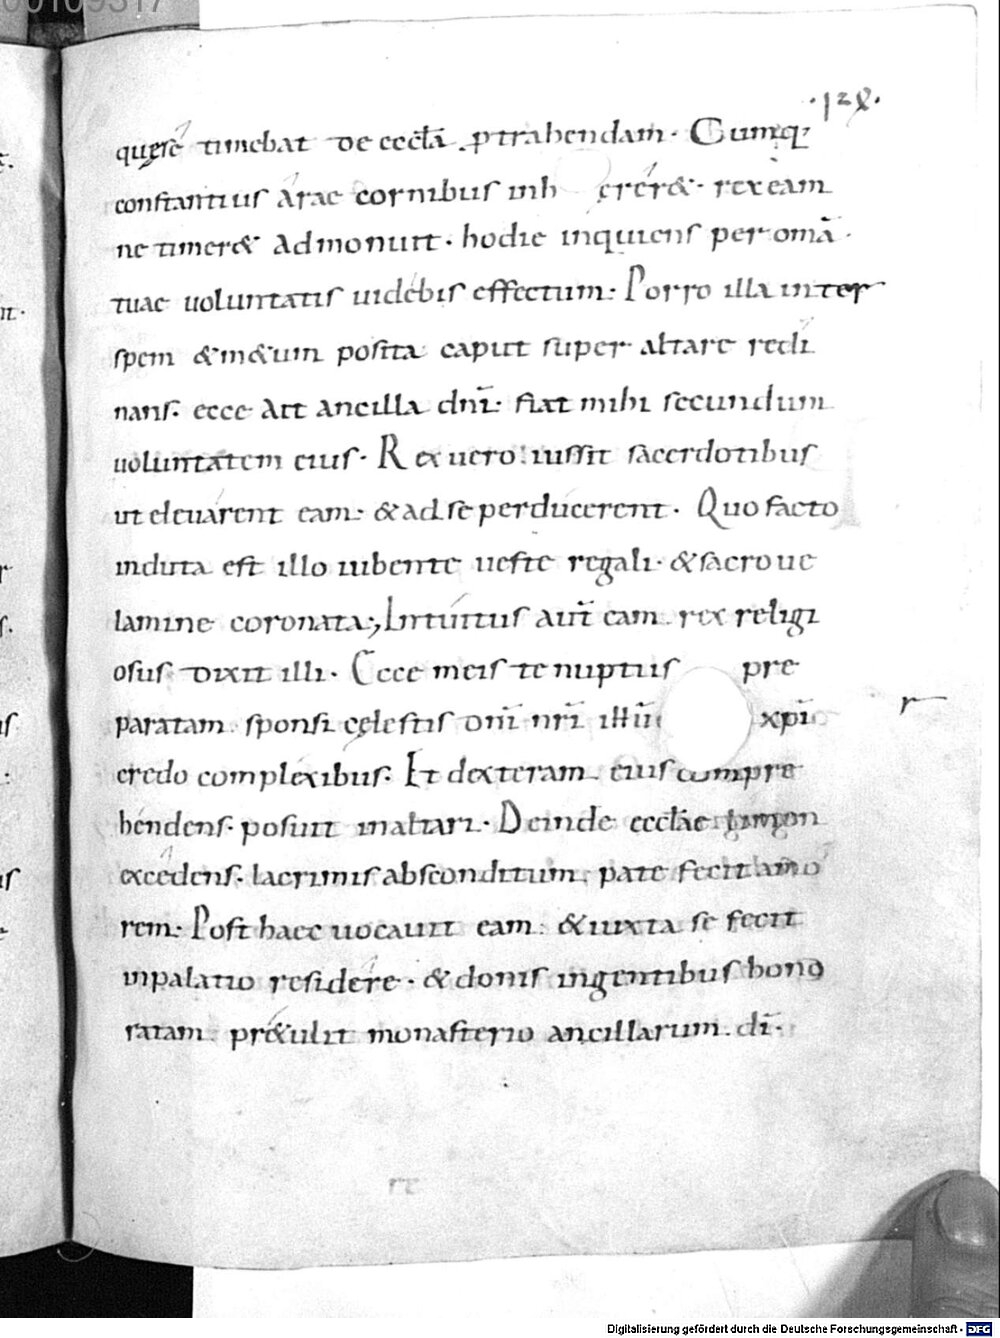 00109317
·128·
quęre timebat de eccła ptrahendam. Cumq;
constantius arae cornibus inh ereret. rex eam
ne timeret admonuit. hodie inquiens per omā.
tuae uoluntatis uidebis effectum. Porro illa inter
spem & metum posita caput super altare recli
nans. ecce ait ancilla dni. fiat mihi secundum
uoluntatem eius. Rex uero iussit sacerdotibus
ut eleuarent eam. & ad se perducerent. Quo facto
induta est illo iubente ueste regali. & sacro ue
lamine coronata; Intuitus aut eam rex religi
osus dixit illi. Ecce meis te nuptiis pre
paratam sponsi cęlestis dni nri xpi
credo complexibus. Et dexteram eius compre
hendens. posuit in altari. Deinde eccłae
excedens. lacrimis absconditum. patefecit amo
rem. Post haec uocauit eam. & iuxta se fecit
in palatio residere. & donis ingentibus hono
ratam. pretulit monasterio ancillarum di.
Digitalisierung gefördert durch die Deutsche Forschungsgemeinschaft - DFG